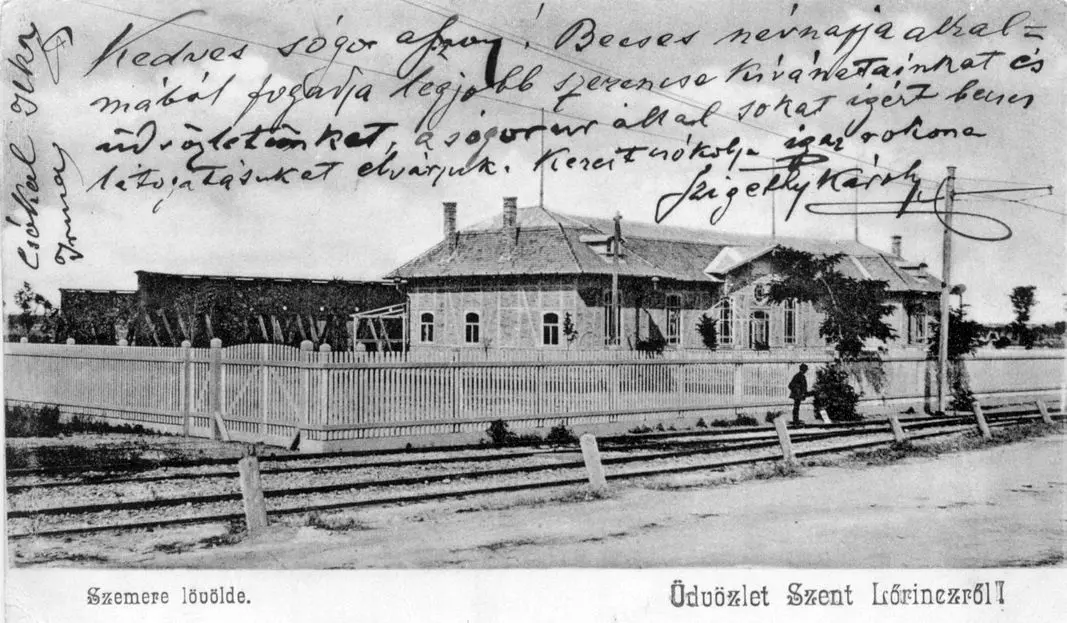 Kedves sógor
! Becses névnapja alkal=
mából fogadja legjobb szerencse kívánatainkat és
üdvözletünket, a sógor úr által sokat igért becses
látogatásukat elvárjuk. Kezeit csókolja igaz rokona
Szigethy Károly
Csókol Ilka
Irma
Szemere lövölde.
Üdvözlet Szent Lőrinczről!